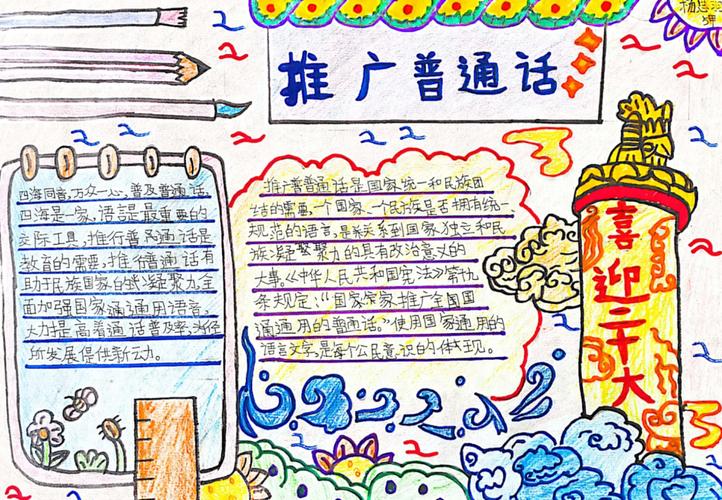 推广普通话
四海同音,万众一心,普及普通话,
四海是一家,语言是最重要的
交际工具,推行普通话是
教育的需要,推行普通话有
助于民族国家的凝聚力,全
面加强国家通用语言,
大力提高普通话普及率,为经
所发展提供新动力。
推广普通话是国家统一和民族团
结的需要,一个国家、一个民族是否拥有统一、
规范的语言,是关系到国家独立和民
族凝聚力的具有政治意义的
大事。《中华人民共和国宪法》第十九
条规定:“国家推广全国
通用的普通话。”使用国家通用的
语言文字,是每个公民意识的体现。
喜迎二十大